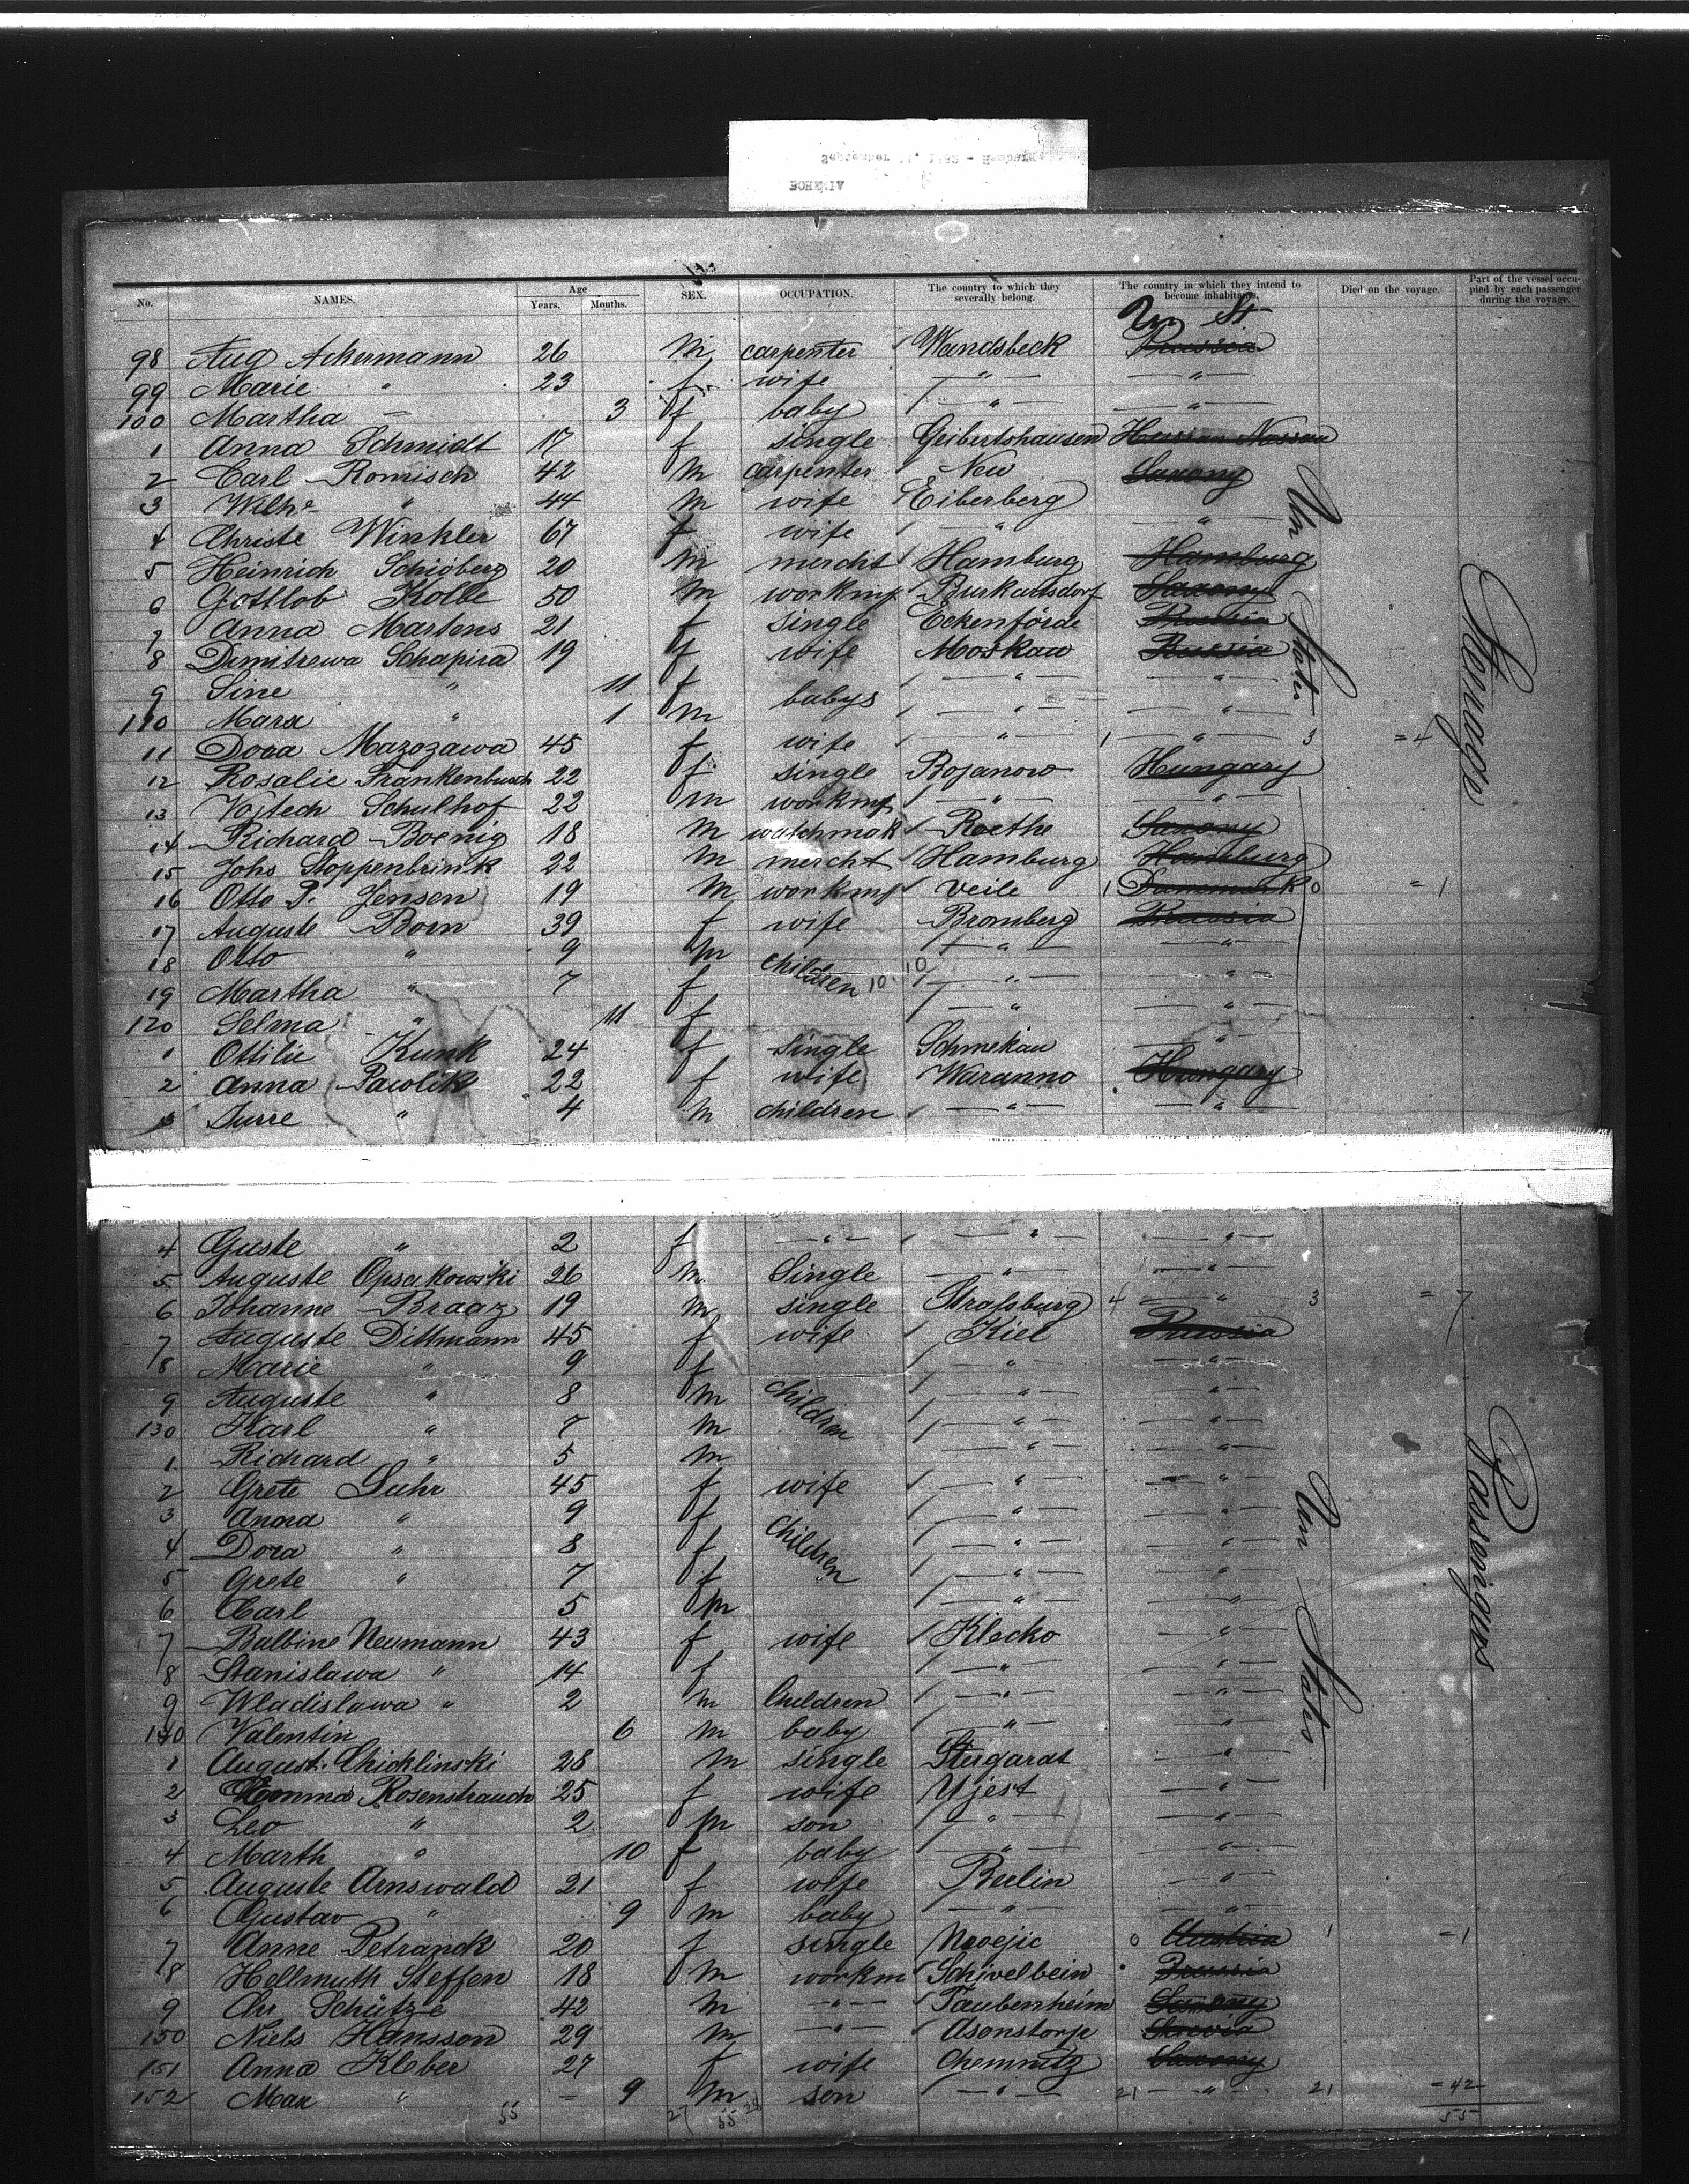 No. NAMES. Age Years. Months. SEX. OCCUPATION. The country to which they severally belong. The country in which they intend to become inhabitants. Died on the voyage. Part of the vessel occupied by each passenger during the voyage.
Un St
98 Aug Ackermann 26 m carpenter Wandsbeck Prussia
99 Marie " 23 f wife " "
100 Martha — 3 f baby " "
1 Anna Schmidt 17 f single Geibertshausen Hessen Nassau
2 Carl Romisch 42 m carpenter New Saxony
3 Wilhe " 44 m wife Eiberberg
4 Christe Winkler 67 f wife " "
5 Heinrich Schiöberg 20 m mercht Hamburg Hamburg
6 Gottlob Kolbe 50 m workmg Burkardsdorf Saxony
7 Anna Martens 21 f single Eckenförde Prussia
8 Dimitrewa Schapira 19 f wife Moskau Russia
9 Sine " 11 f babys " "
110 Marx " 1 m " "
11 Dora Mazozawa 45 f wife " 1 " 3 = 4
12 Rosalie Frankenbusch 22 f single Bojanow Hungary
13 Vojtech Schulhof 22 m workmg " "
14 Richard Boenig 18 m watchmak Roethe Saxony
15 Johs Stoppenbrink 22 m mercht Hamburg Hamburg
16 Otto P. Jensen 19 m workmg Veile 1 Danemark 0 = 1
17 Auguste Born 39 f wife Bromberg Prussia
18 Otto " 9 m children " "
19 Martha " 7 f 10 10 " "
120 Selma " 11 f " "
1 Ottilie Kunk 24 f single Schmekau "
2 Anna Pawlik 22 f wife Waranno Hungary
3 Surre " 4 m children " "
4 Guste " 2 f " " "
5 Auguste Opsakowski 26 m Single " "
6 Johanne Braaz 19 m single Strassburg 4 " 3 = 7
7 Auguste Dittmann 45 f wife Kiel Prussia
8 Marie " 9 f " "
9 Auguste " 8 m children " "
130 Karl " 7 m " "
1 Richard " 5 m " "
2 Grete Suhr 45 f wife " "
3 Anna " 9 f " "
4 Dora " 8 f children " "
5 Grete " 7 f " "
6 Carl 5 m " "
7 Balbine Neumann 43 f wife Klecko "
8 Stanislawa " 14 f " "
9 Wladislawa " 2 m Children " "
140 Valentin 6 m baby " "
1 August. Chicklinski 28 m single Stergardt "
2 Emma Rosenstrauch 25 f wife Ujest "
3 Leo " 2 m son " "
4 Marth " 10 f baby " "
5 Auguste Arnswald 21 f wife Berlin "
6 Gustav " 9 m baby " "
7 Anne Petranck 20 f single 0 Austria 1 = 1
8 Hellmuth Steffen 18 m workm Schivelbein Prussia
9 Chr Schütze 42 m " Taubenheim Saxony
150 Niels Hansson 29 m " Asonstorp
151 Anna Kleber 27 f wife Chemnitz Saxony
152 Max " – 9 m son " 21 " 21 = 42
55 27 55 28 55
Un States
Un States
Passengers